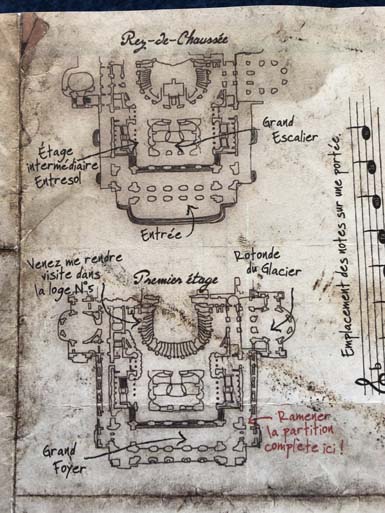 Rez-de-Chaussée
Grand
Escalier
Étage
intermédiaire
Entresol
Entrée
Emplacement des notes sur une portée.
Venez me rendre
visite dans
la loge N°5
Premier étage
Rotonde
du Glacier
Grand
Foyer
Ramener
la partition
complète ici !